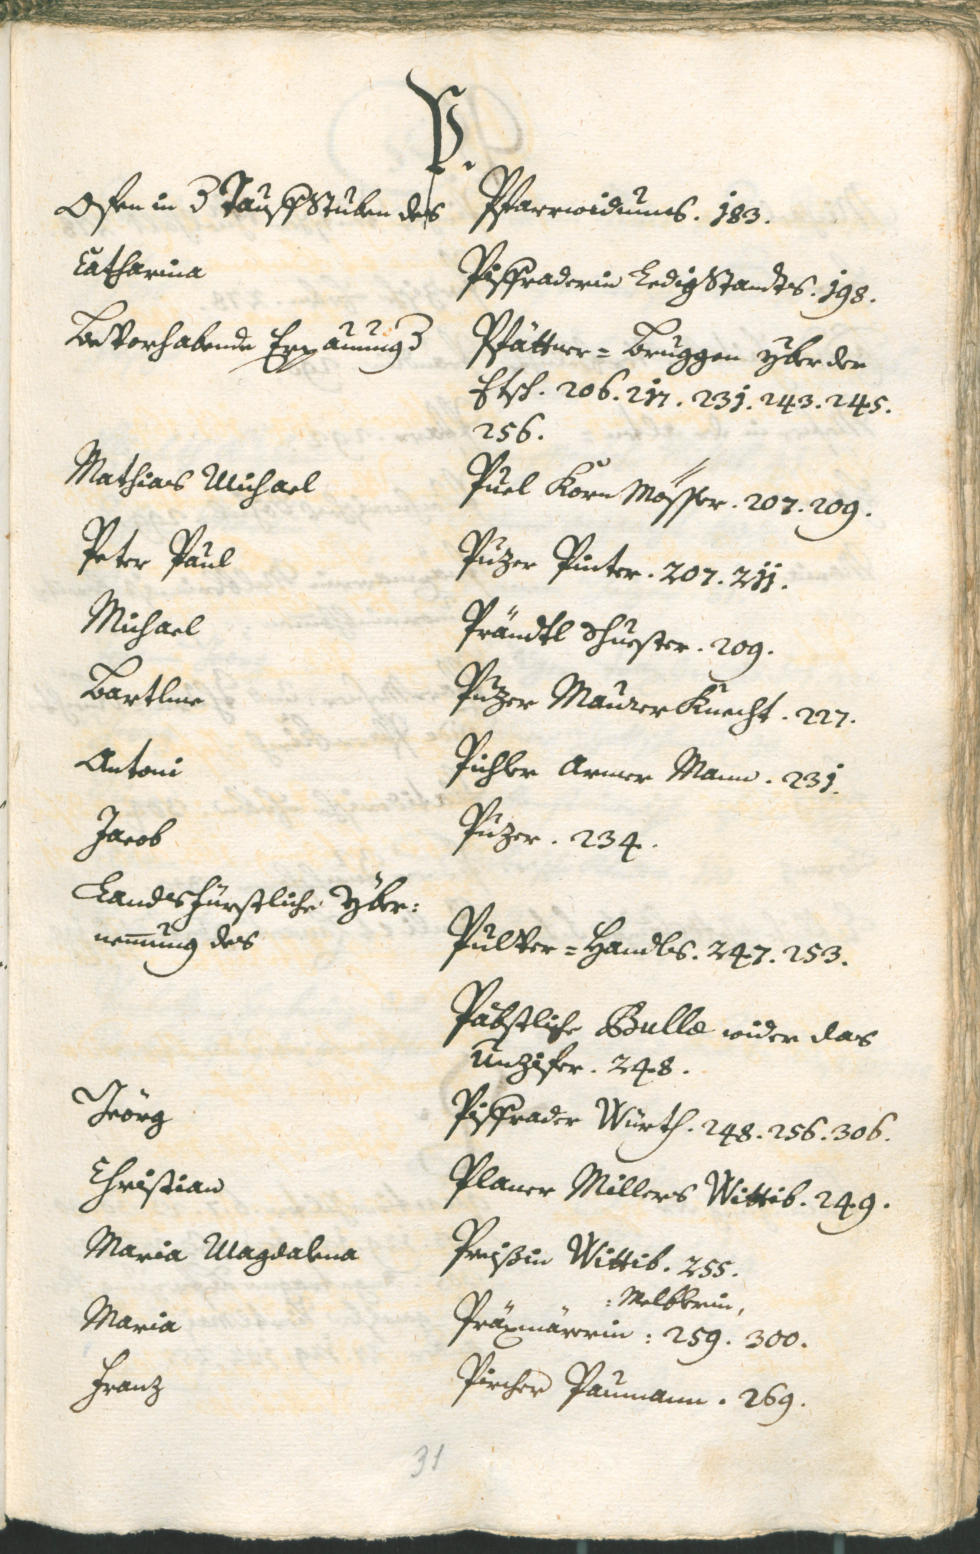 P.
Ofen in d Tauff Stuben des Pfarrwidums. 183.
Catharina Piffraderin Ledig Standts. 198.
Bevorhabende Erpauung d Pfättner=Bruggen yber der
Etsch. 206. 217. 231. 243. 245.
256.
Mathias Michael Puel Korn Mösser. 207. 209.
Peter Paul Puzer Pinter. 207. 211.
Michael Prändtl Schuester. 209.
Bartlme Puzer Maurer Knecht. 227.
Antoni Pichler Armer Mann. 231.
Jacob Puzer. 234.
Landsfürstliche Yber:
nemung des Pulver=Handls. 247. 253.
Päbstliche Bulla wider das
Unzifer. 248.
Jeörg Piffrader Würth. 248. 256. 306.
Christian Planer Millers Wittib. 249.
Maria Magdalena Preißin Wittib. 255.
:Melblerin,
Maria Präxmärrin: 259. 300.
Franz Pircher Paumann. 269.
31